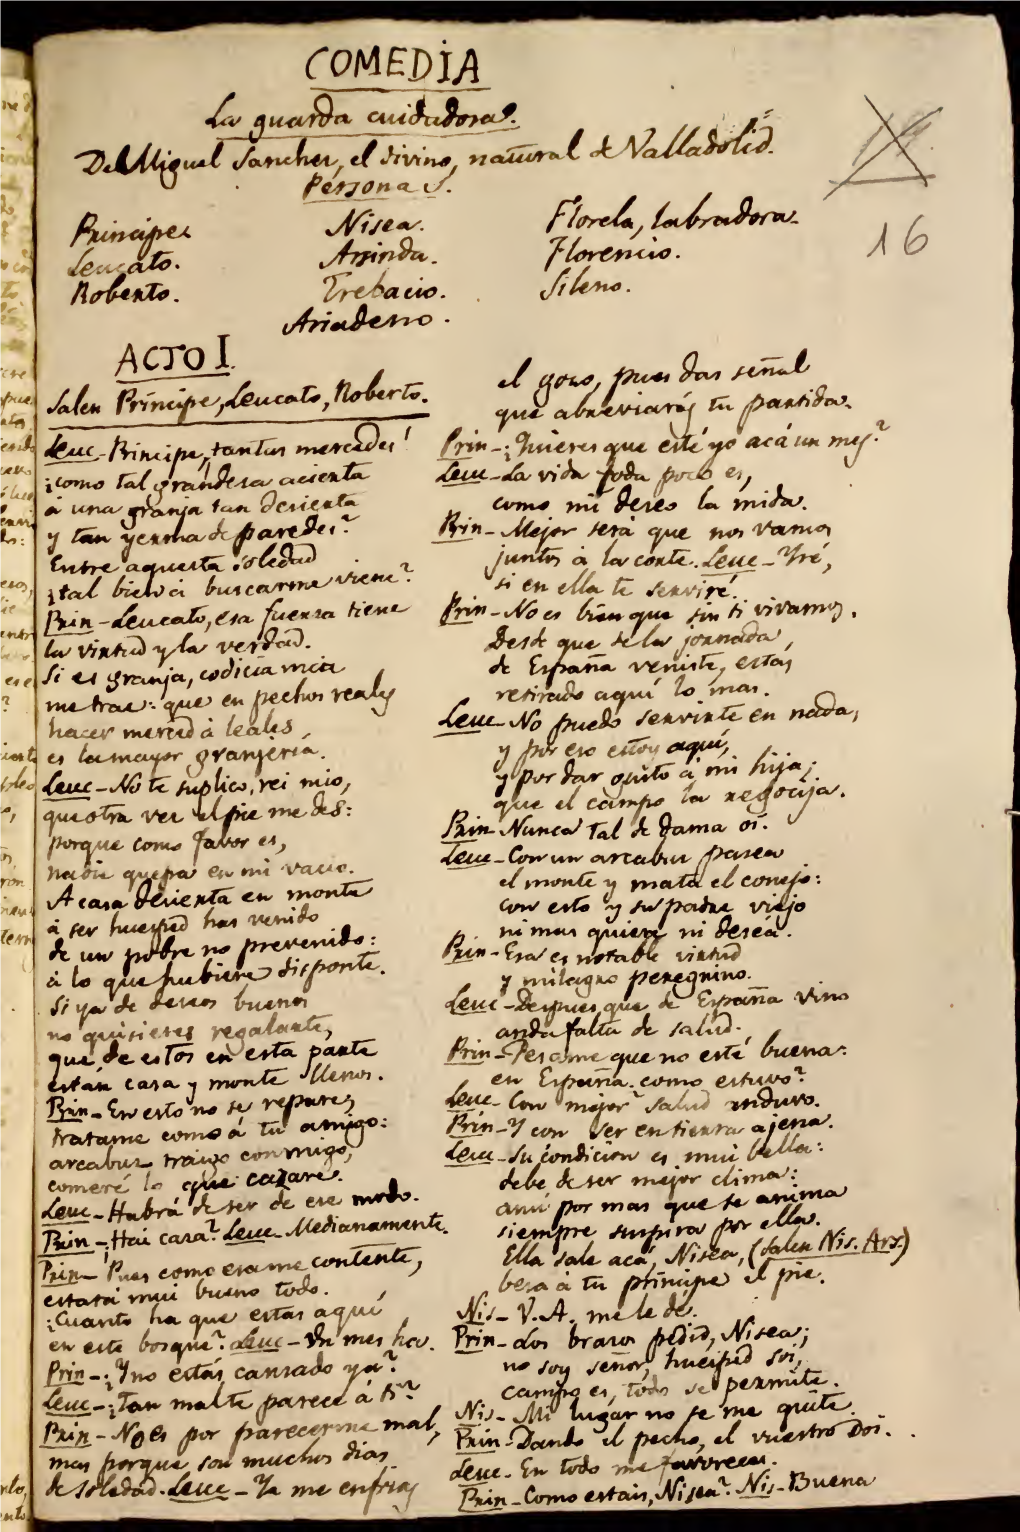 COMEDIA
La guarda cuidadosa.
Del Miguel Sanchez, el divino, natural de Valladolid.
Personas.
Principe
Leucato.
Roberto.
Nisea.
Arsinda.
Trebacio.
Ariadeno.
Florela, labradora.
Florencio.
Sileno.
16
ACTO I.
Salen Príncipe, Leucato, Roberto.
Leuc-Principe, tantas mercedes!
¿como tal grandeza acienta
á una granja tan desienta
y tan yerma de paredes?
Entre aquesta soledad
¿tal bien á buscarme viene?
Prin-Leucato, esa fuerza tiene
la virtud y la verdad.
Si es granja, codicia mia
me trae: que en pechos reales
hacer merced á leales
es la mayor granjería.
Leuc-No te suplico, rei mio,
que otra vez el pie me des:
porque como favor es,
nadie quepa en mi vacio.
A casa desierta en monte
á ser huesped has venido
de un pobre no prevenido:
á lo que hubiere disponte.
Si ya de deseos buenos
no quisieres regalarte,
que de estos en esta parte
están casa y monte llenos.
Prin-En esto no se repare,
tratame como á tu amigo:
arcabuz traigo conmigo,
comeré lo que cazare.
Leuc-Habrá de ser de ese modo.
Prin-¿Hai caza? Leuc-Medianamente.
Prin-Pues como esa me contente,
estará mui bueno todo.
¿Cuanto ha que estas aquí
en este bosque? Leuc-Un mes ha.
Prin-¿Y no estás cansado ya?
Leuc-¿Tan mal te parece á ti?
Prin-No es por parecerme mal,
mas porque son muchos dias
de soledad. Leuc-Ya me enfrias
el gozo, pues das señal
que abreviarás tu partida.
Prin-¿Quieres que esté yo acá un mes?
Leuc-La vida toda poco es,
como mi deseo la mida.
Prin-Mejor será que nos vamos
juntos á la corte. Leuc-Yré,
si en ella te serviré.
Prin-No es bien que sin ti vivamos.
Desde que de la jornada
de España veniste, estás
retirado aquí lo mas.
Leuc-No puedo servirte en nada,
y por eso estoy aquí,
y por dar gusto á mi hija;
que el campo la regocija.
Prin-Nunca tal de dama oí.
Leuc-Con un arcabuz pasea
el monte y mata el conejo:
con esto y su padre viejo
ni mas quiere ni desea.
Prin-Esa es notable virtud
y milagro peregrino.
Leuc-Despues que de España vino
anda falta de salud.
Prin-Pesame que no esté buena:
en España como estuvo?
Leuc-Con mejor salud anduvo.
Prin-Y con ser en tierra ajena.
Leuc-Su condicion es mui bella:
debe de ser mejor clima:
aquí por mas que se anima
siempre suspira por ella.
Ella sale acá, Nisea, (Salen Nis. Ars.)
besa á tu príncipe el pie.
Nis-V.A. me le dé.
Prin-Los brazos pedid, Nisea;
no soy señor, huesped soi,
campo es, todo se permite.
Nis-Mi lugar no se me quite.
Prin-Dando el pecho, el vuestro doi.
Leuc-En todo me favoreces.
Prin-Como estais, Nisea? Nis-Buena